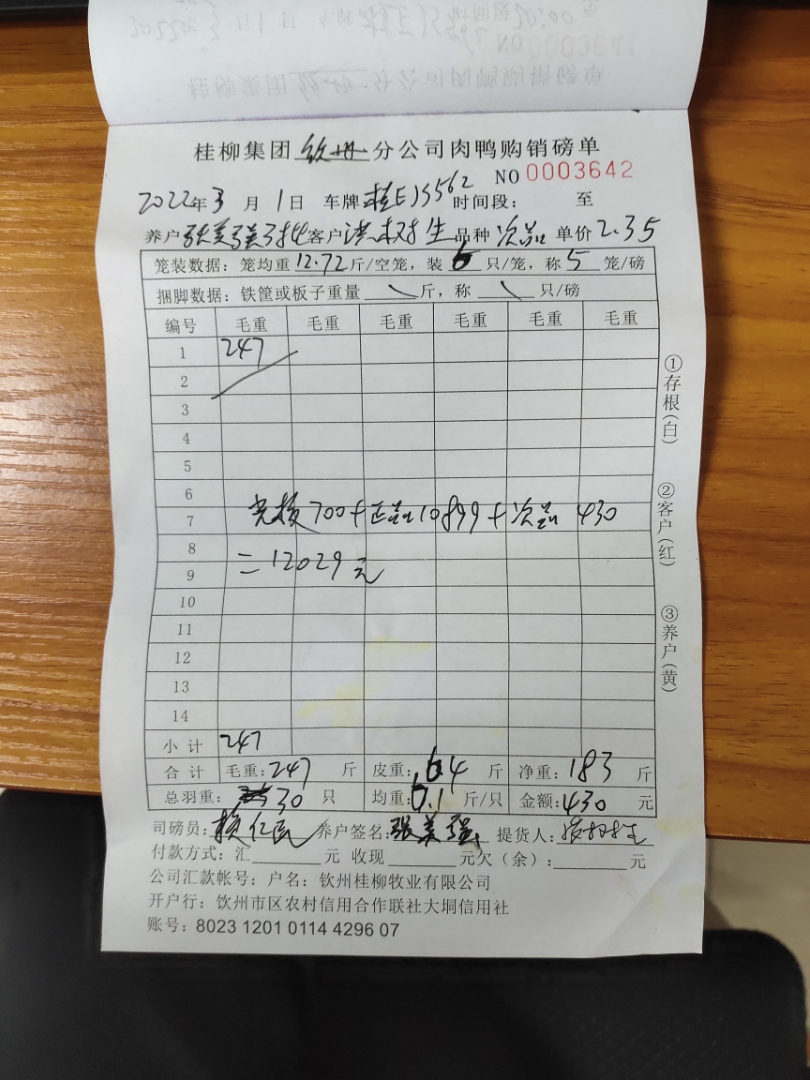 桂柳集团 钦州 分公司肉鸭购销磅单
NO 0003642
2022年3月1日 车牌 桂E15562 时间段: 至
养户 张美强 客户 洪树生 品种 次品 单价 2.35
笼装数据: 笼均重 12.72 斤/空笼, 装 6 只/笼, 称 5 笼/磅
捆脚数据: 铁筐或板子重量 \ 斤, 称 \ 只/磅
编号 毛重 毛重 毛重 毛重 毛重 毛重
1 247
2
3
4
5
6
7 700+正品10899+次品 430
8
9 =12029元
10
11
12
13
14
小计 247
合计 毛重:247 斤 皮重:64 斤 净重:183 斤
总羽重: 30 只 均重:6.1 斤/只 金额:430 元
司磅员: 赖仁民 养户签名: 张美强 提货人:
付款方式: 汇 元 收现 元欠(余): 元
公司汇款帐号: 户名: 钦州桂柳牧业有限公司
开户行: 钦州市区农村信用合作联社大垌信用社
账号: 8023 1201 0114 4296 07
①存根(白)
②客户(红)
③养户(黄)